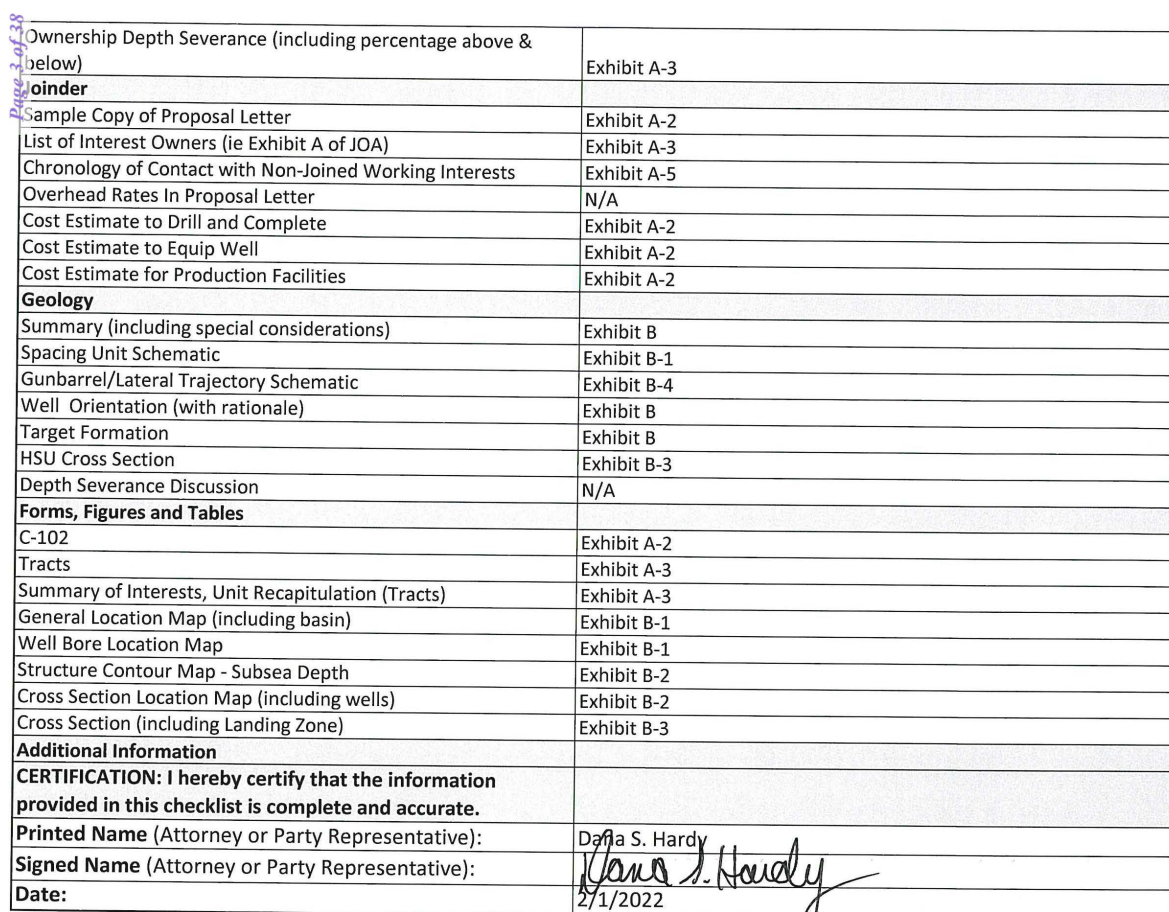 Page 3 of 38
Ownership Depth Severance (including percentage above &
below) Exhibit A-3
Joinder
Sample Copy of Proposal Letter Exhibit A-2
List of Interest Owners (ie Exhibit A of JOA) Exhibit A-3
Chronology of Contact with Non-Joined Working Interests Exhibit A-5
Overhead Rates In Proposal Letter N/A
Cost Estimate to Drill and Complete Exhibit A-2
Cost Estimate to Equip Well Exhibit A-2
Cost Estimate for Production Facilities Exhibit A-2
Geology
Summary (including special considerations) Exhibit B
Spacing Unit Schematic Exhibit B-1
Gunbarrel/Lateral Trajectory Schematic Exhibit B-4
Well Orientation (with rationale) Exhibit B
Target Formation Exhibit B
HSU Cross Section Exhibit B-3
Depth Severance Discussion N/A
Forms, Figures and Tables
C-102 Exhibit A-2
Tracts Exhibit A-3
Summary of Interests, Unit Recapitulation (Tracts) Exhibit A-3
General Location Map (including basin) Exhibit B-1
Well Bore Location Map Exhibit B-1
Structure Contour Map - Subsea Depth Exhibit B-2
Cross Section Location Map (including wells) Exhibit B-2
Cross Section (including Landing Zone) Exhibit B-3
Additional Information
CERTIFICATION: I hereby certify that the information
provided in this checklist is complete and accurate.
Printed Name (Attorney or Party Representative): Dana S. Hardy
Signed Name (Attorney or Party Representative): Dana S. Hardy
Date: 2/1/2022